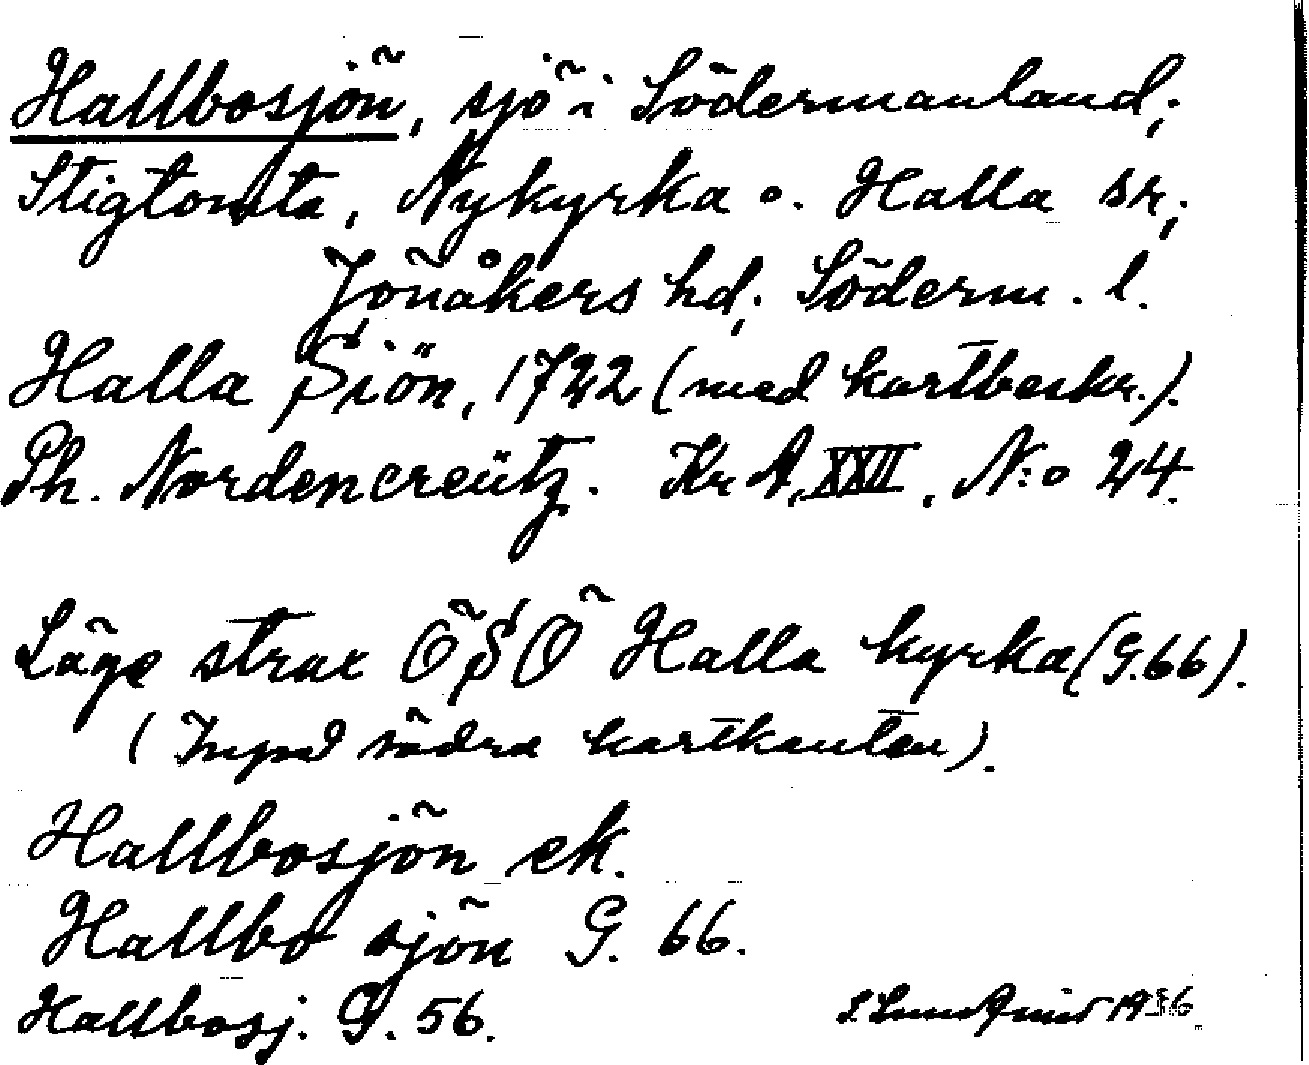 Hallbosjön, sjö i Södermanland;
Stigtomta, Nykyrka o. Halla sn;
Jönåkers hd; Söderm. l.
Halla Siön, 1722 (med kartbeskr.).
Ph. Nordencreütz. Kr A, XXII, N:o 24.
Läge strax ÖSÖ Halla kyrka (G.66).
(Invid södra kartkanten).
Hallbosjön ek.
Hallbo sjön G. 66.
Hallbosj. G. 56.
S. Lundqvist 1936